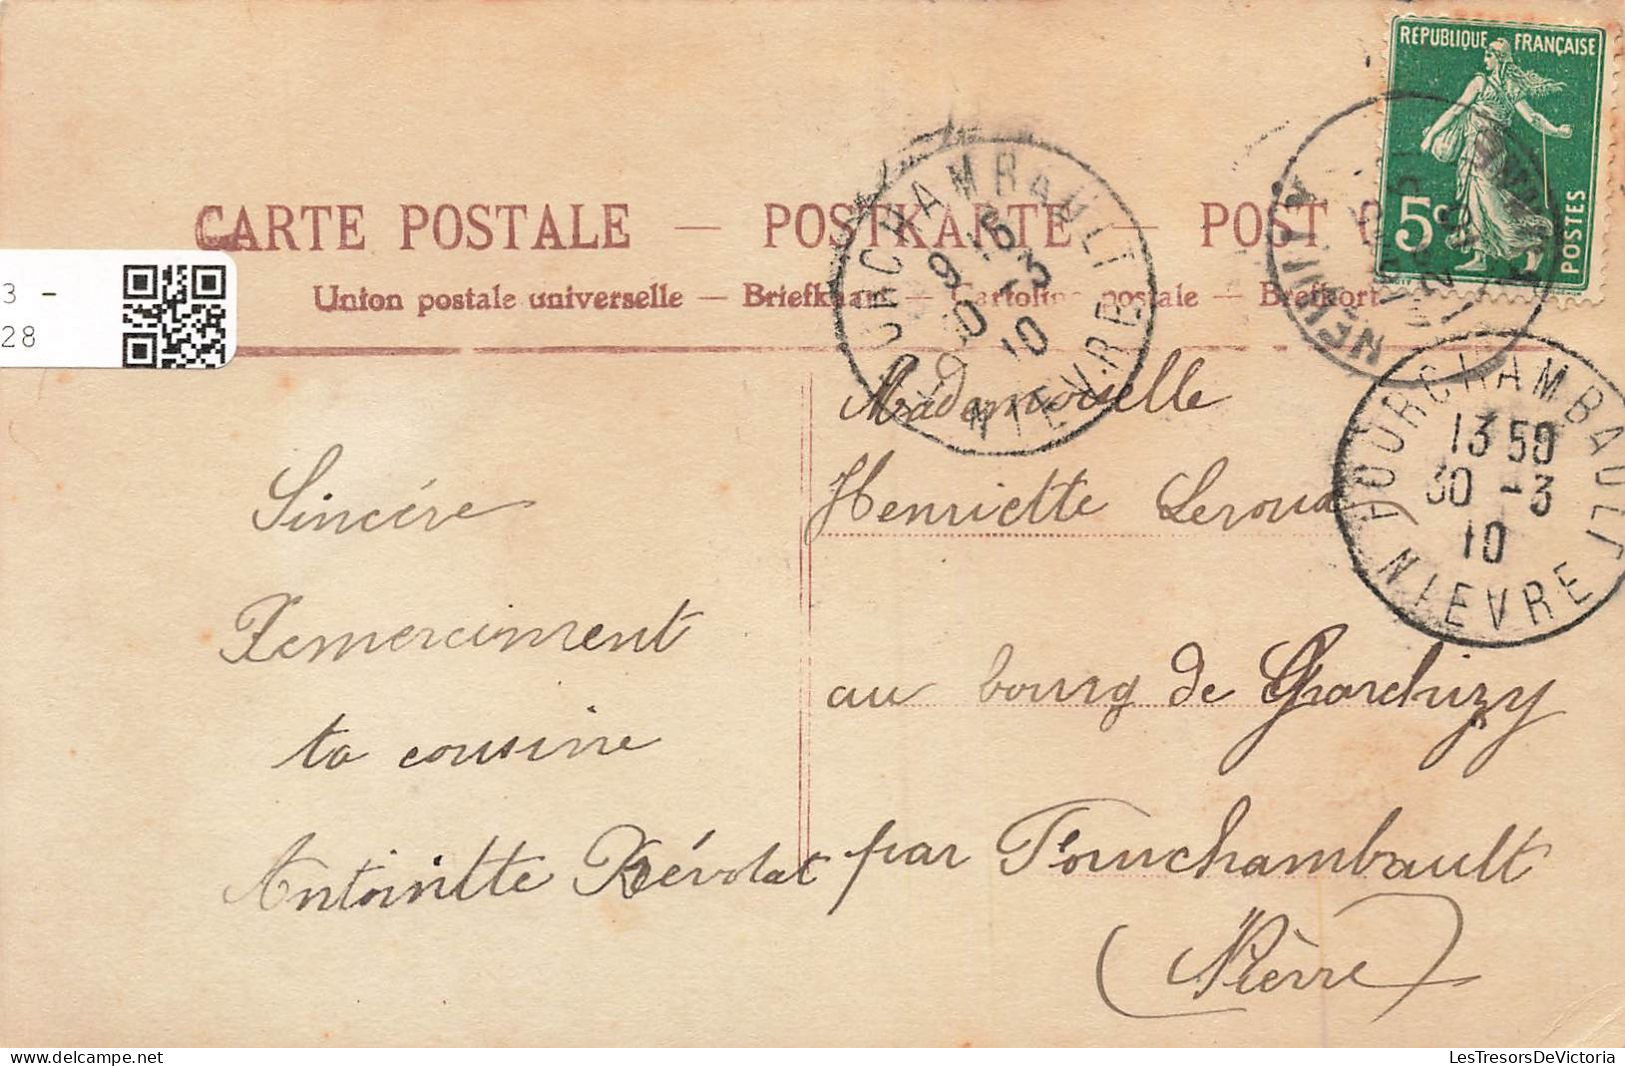 REPUBLIQUE FRANÇAISE
5c
POSTES
CARTE POSTALE — POSTKARTE — POST
Union postale universelle — Briefkaart — Cartolina postale — Brefkort
3 -
28
FOURCHAMBAULT
9 15
30 -3
10
NIEVRE
FOURCHAMBAULT
13 50
30 -3
10
NIEVRE
Sincére
Remerciment
ta cousine
Antoinette Révolat
Mademoiselle
Henriette Leroux
au bourg de Garchizy
par Fourchambault
(Nièvre)
LesTresorsDeVictoria